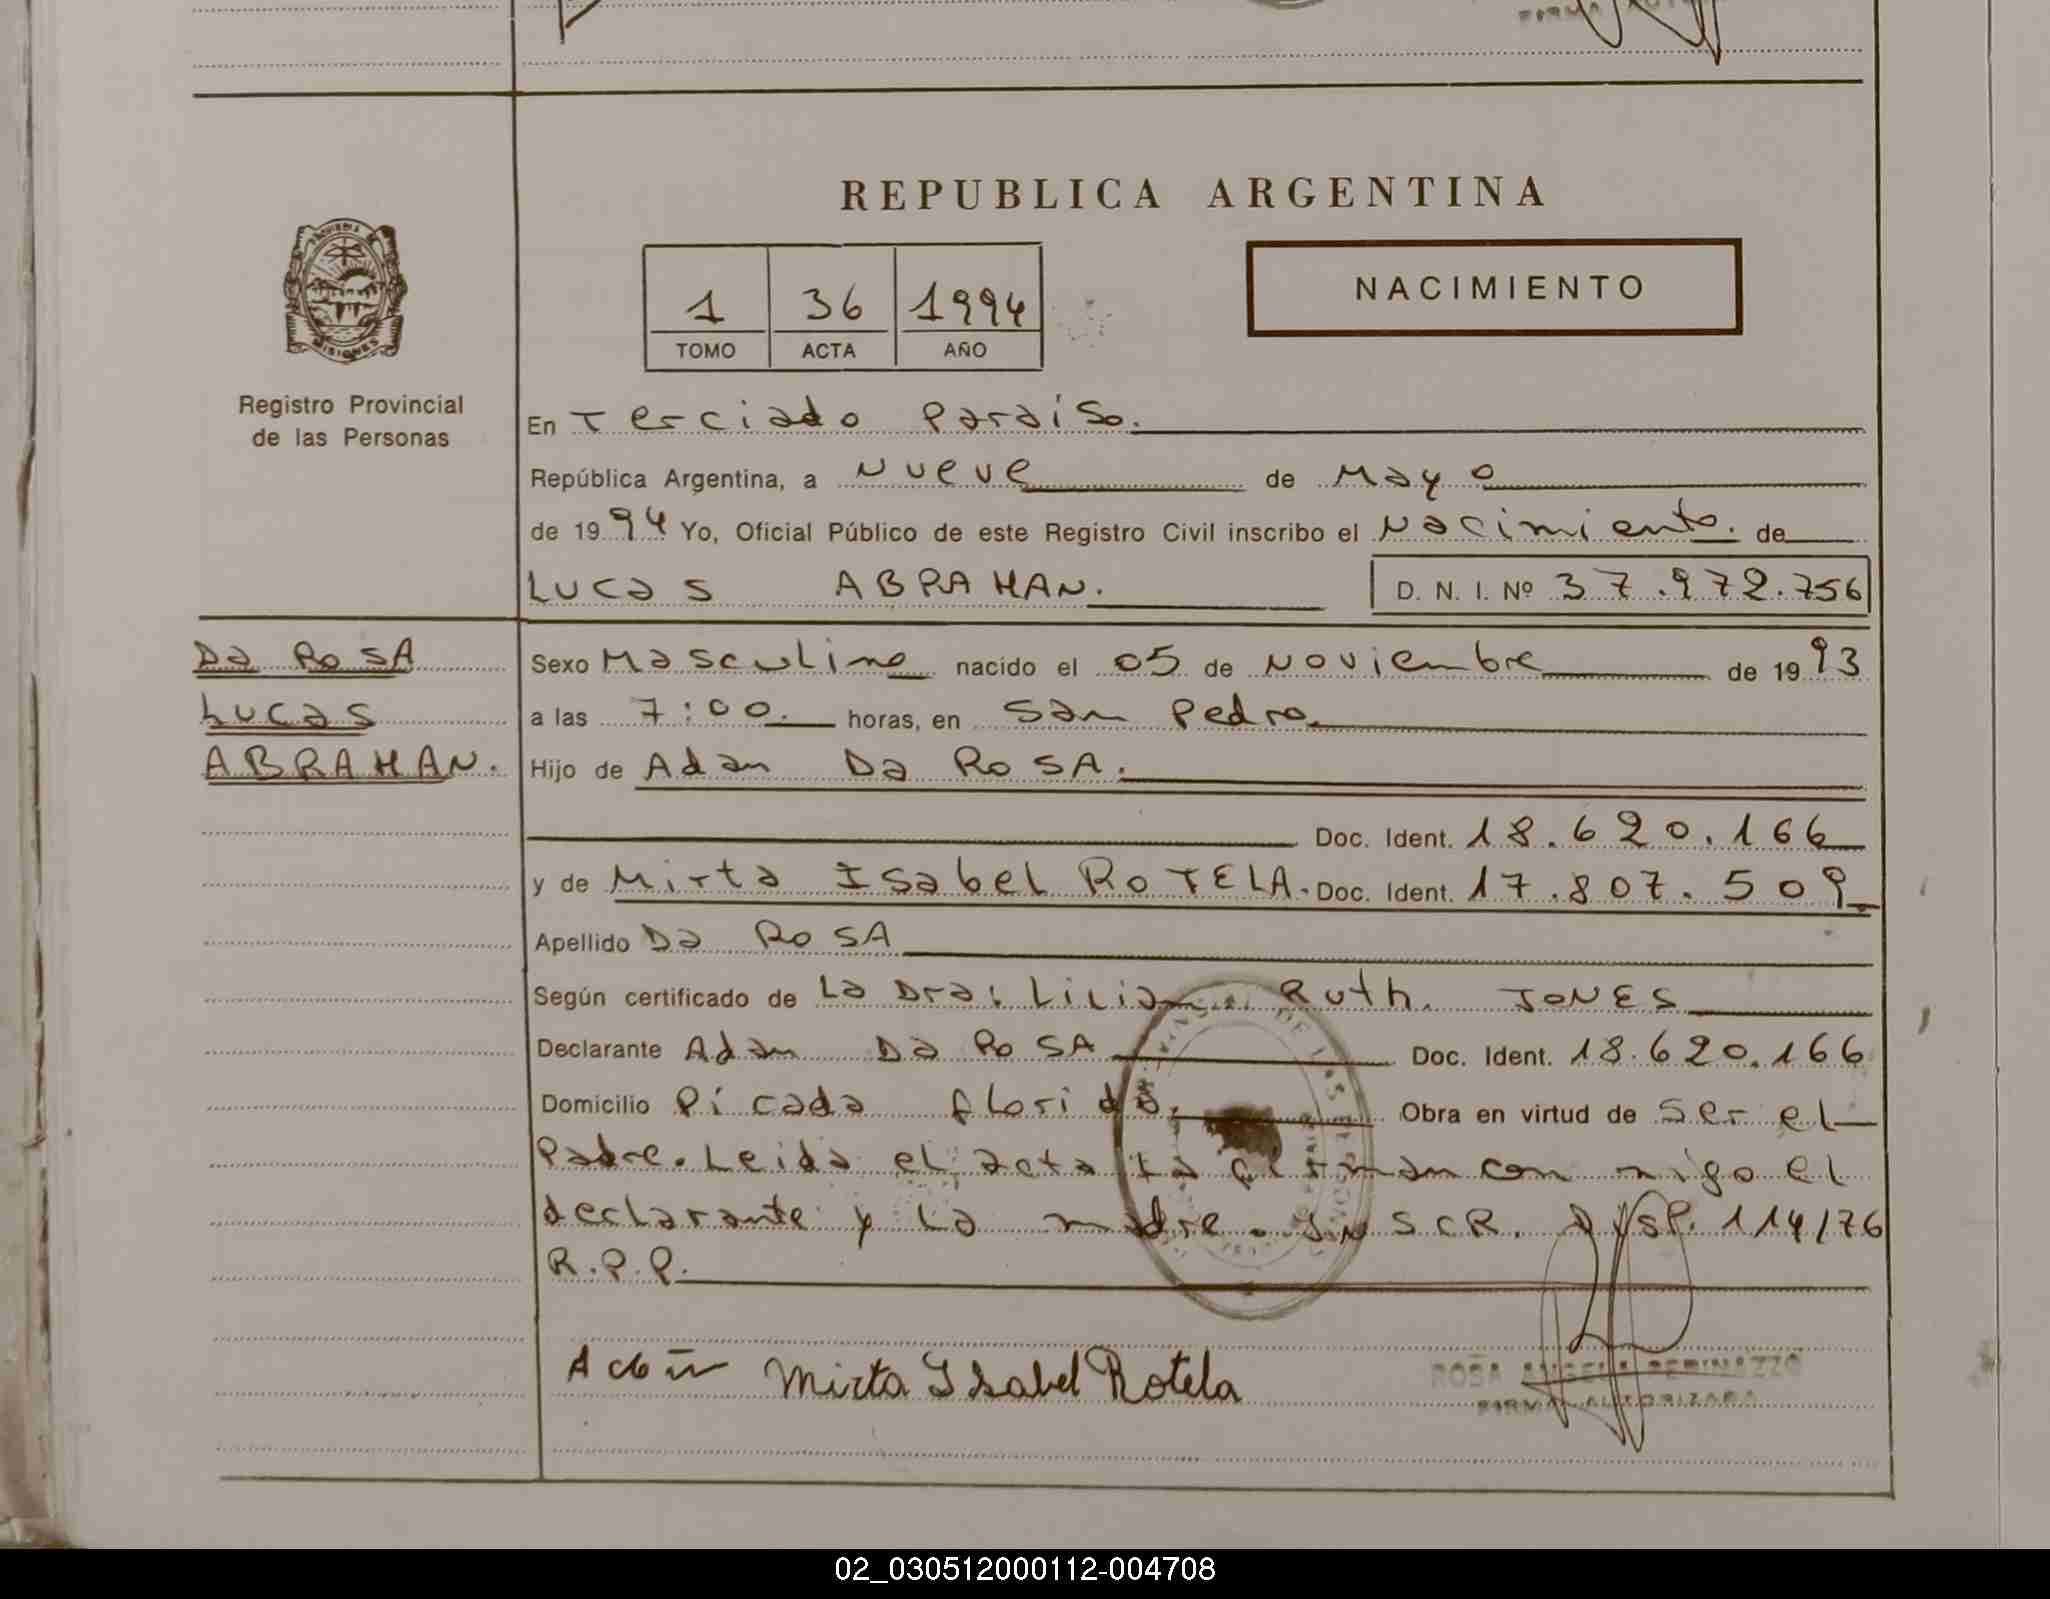 FIRMA AUTO
REPUBLICA ARGENTINA
PROVINCIA DE
MISIONES
1 36 1994
TOMO ACTA AÑO
NACIMIENTO
Registro Provincial
de las Personas
En Terciado Paraiso.
República Argentina, a Nueve de Mayo
de 1994 Yo, Oficial Público de este Registro Civil inscribo el Nacimiento. de
Lucas ABRAHAN. D. N. I. Nº 37.972.756
Da RoSA
Lucas
ABRAHAN.
Sexo Masculino nacido el 05 de Noviembre de 1993
a las 7:00. horas, en San Pedro.
Hijo de Adan Da RoSA.
Doc. Ident. 18.620.166
y de Mirta Isabel RoTELA. Doc. Ident. 17.807.509
Apellido Da RoSA
Según certificado de La Dra. Lilian Ruth. JoNES
Declarante Adan Da RoSA Doc. Ident. 18.620.166
Domicilio Picada florida. Obra en virtud de Ser el
Padre. Leida el acta la firman con migo el
declarante y la madre. INSCR. DISP. 114/76
R.P.P.
Mirta Isabel Rotela
ROSA ANGELA PERINAZZO
FIRMA AUTORIZADA
02_030512000112-004708